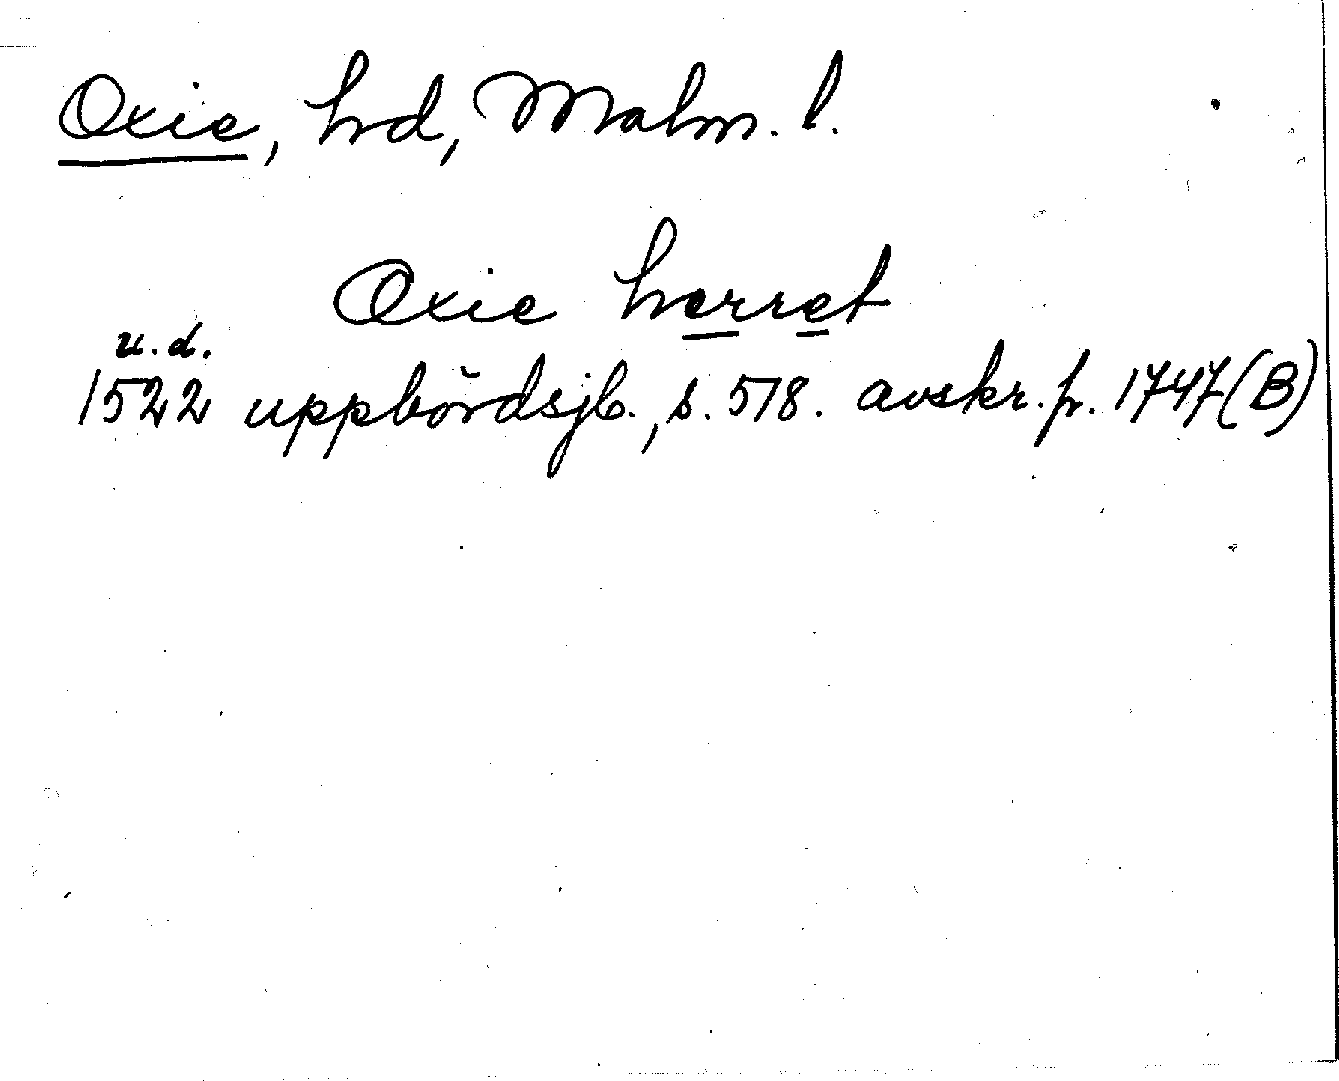 Oxie, hd, Malm. l.
Oxie herret
u. d.
1522 uppbördsjb., s. 518. avskr. fr. 1747 (B)